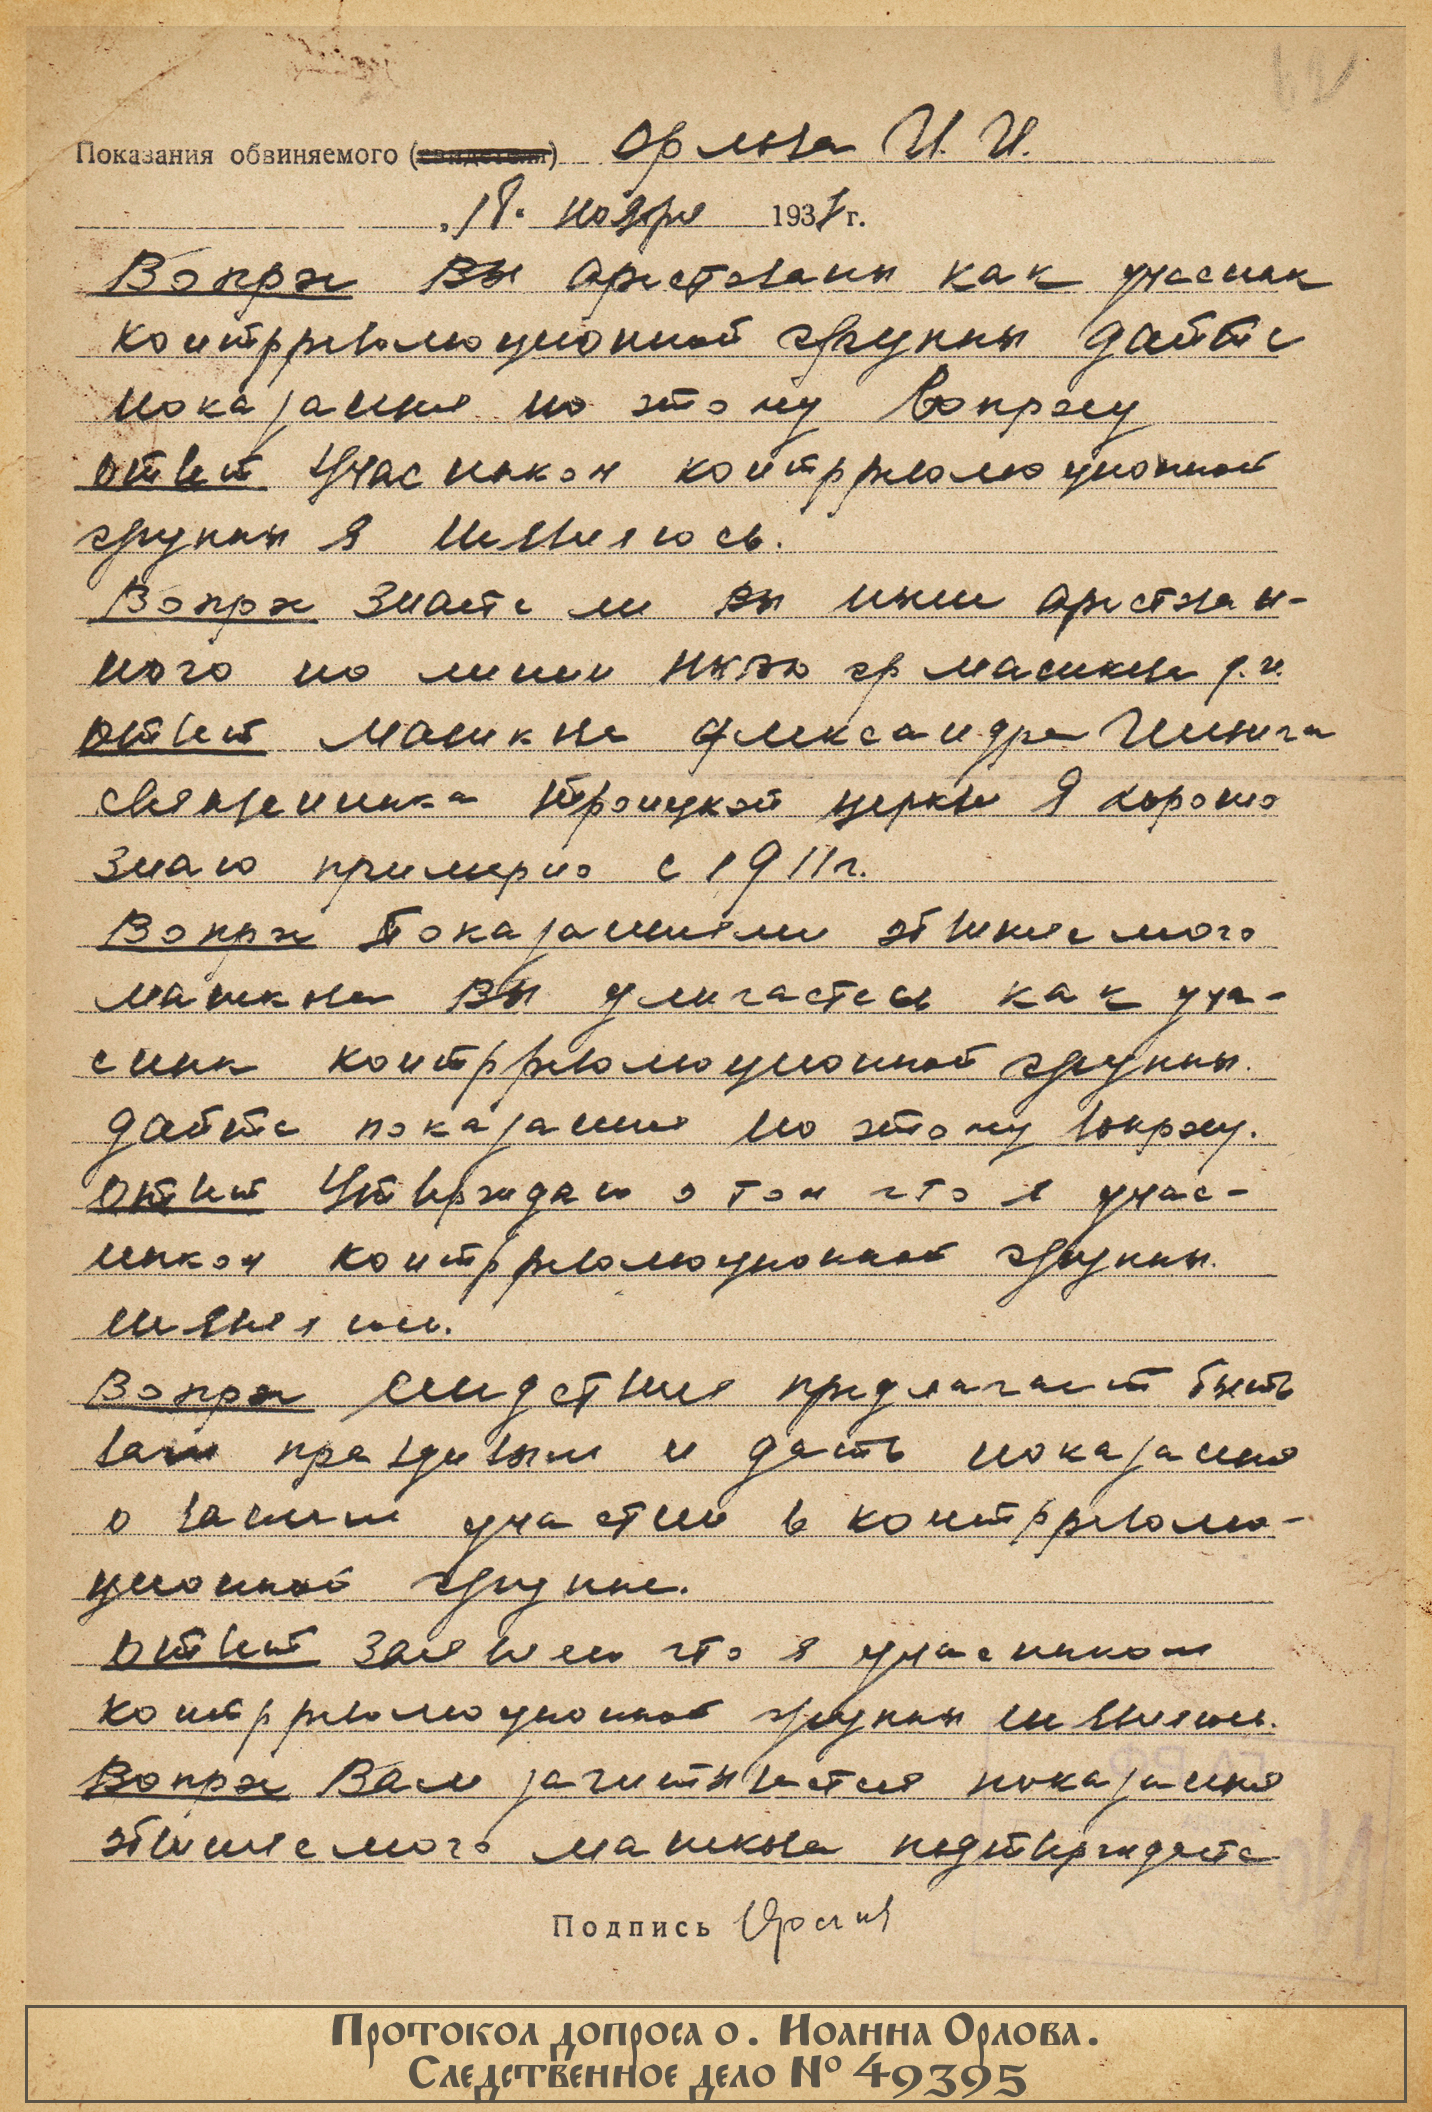 Показания обвиняемого (свидетеля) Орлова И. И.
„18“ ноября 1937 г.
Вопрос Вы арестованы как учасник
контрреволюционной группы дайте
показания по этому вопросу
ответ Учасником контрреволюционной
группы я не являюсь.
Вопрос Знаете ли вы ныне арестован-
ного по линии НКВД гр
ответ Александра
священника Троицкой церкви я хорошо
знаю примерно с 1911 г.
Вопрос Показаниями обвиняемого
вы уличаетесь как уча-
сник контрреволюционной группы.
дайте показания по этому вопросу.
ответ Утверждаю о том что я учас-
ником контрреволюционной группы
не являюсь.
Вопрос Следствие предлагает быть
вам правдивым и дать показания
о вашем участии в контрреволю-
ционной группе.
ответ Заявляю что я учасником
контрреволюционной группы не являюсь.
Вопрос Вам зачитывается показания
обвиняемого подтверждаете
Подпись
Протокол допроса о. Иоанна Орлова.
Следственное дело № 49395